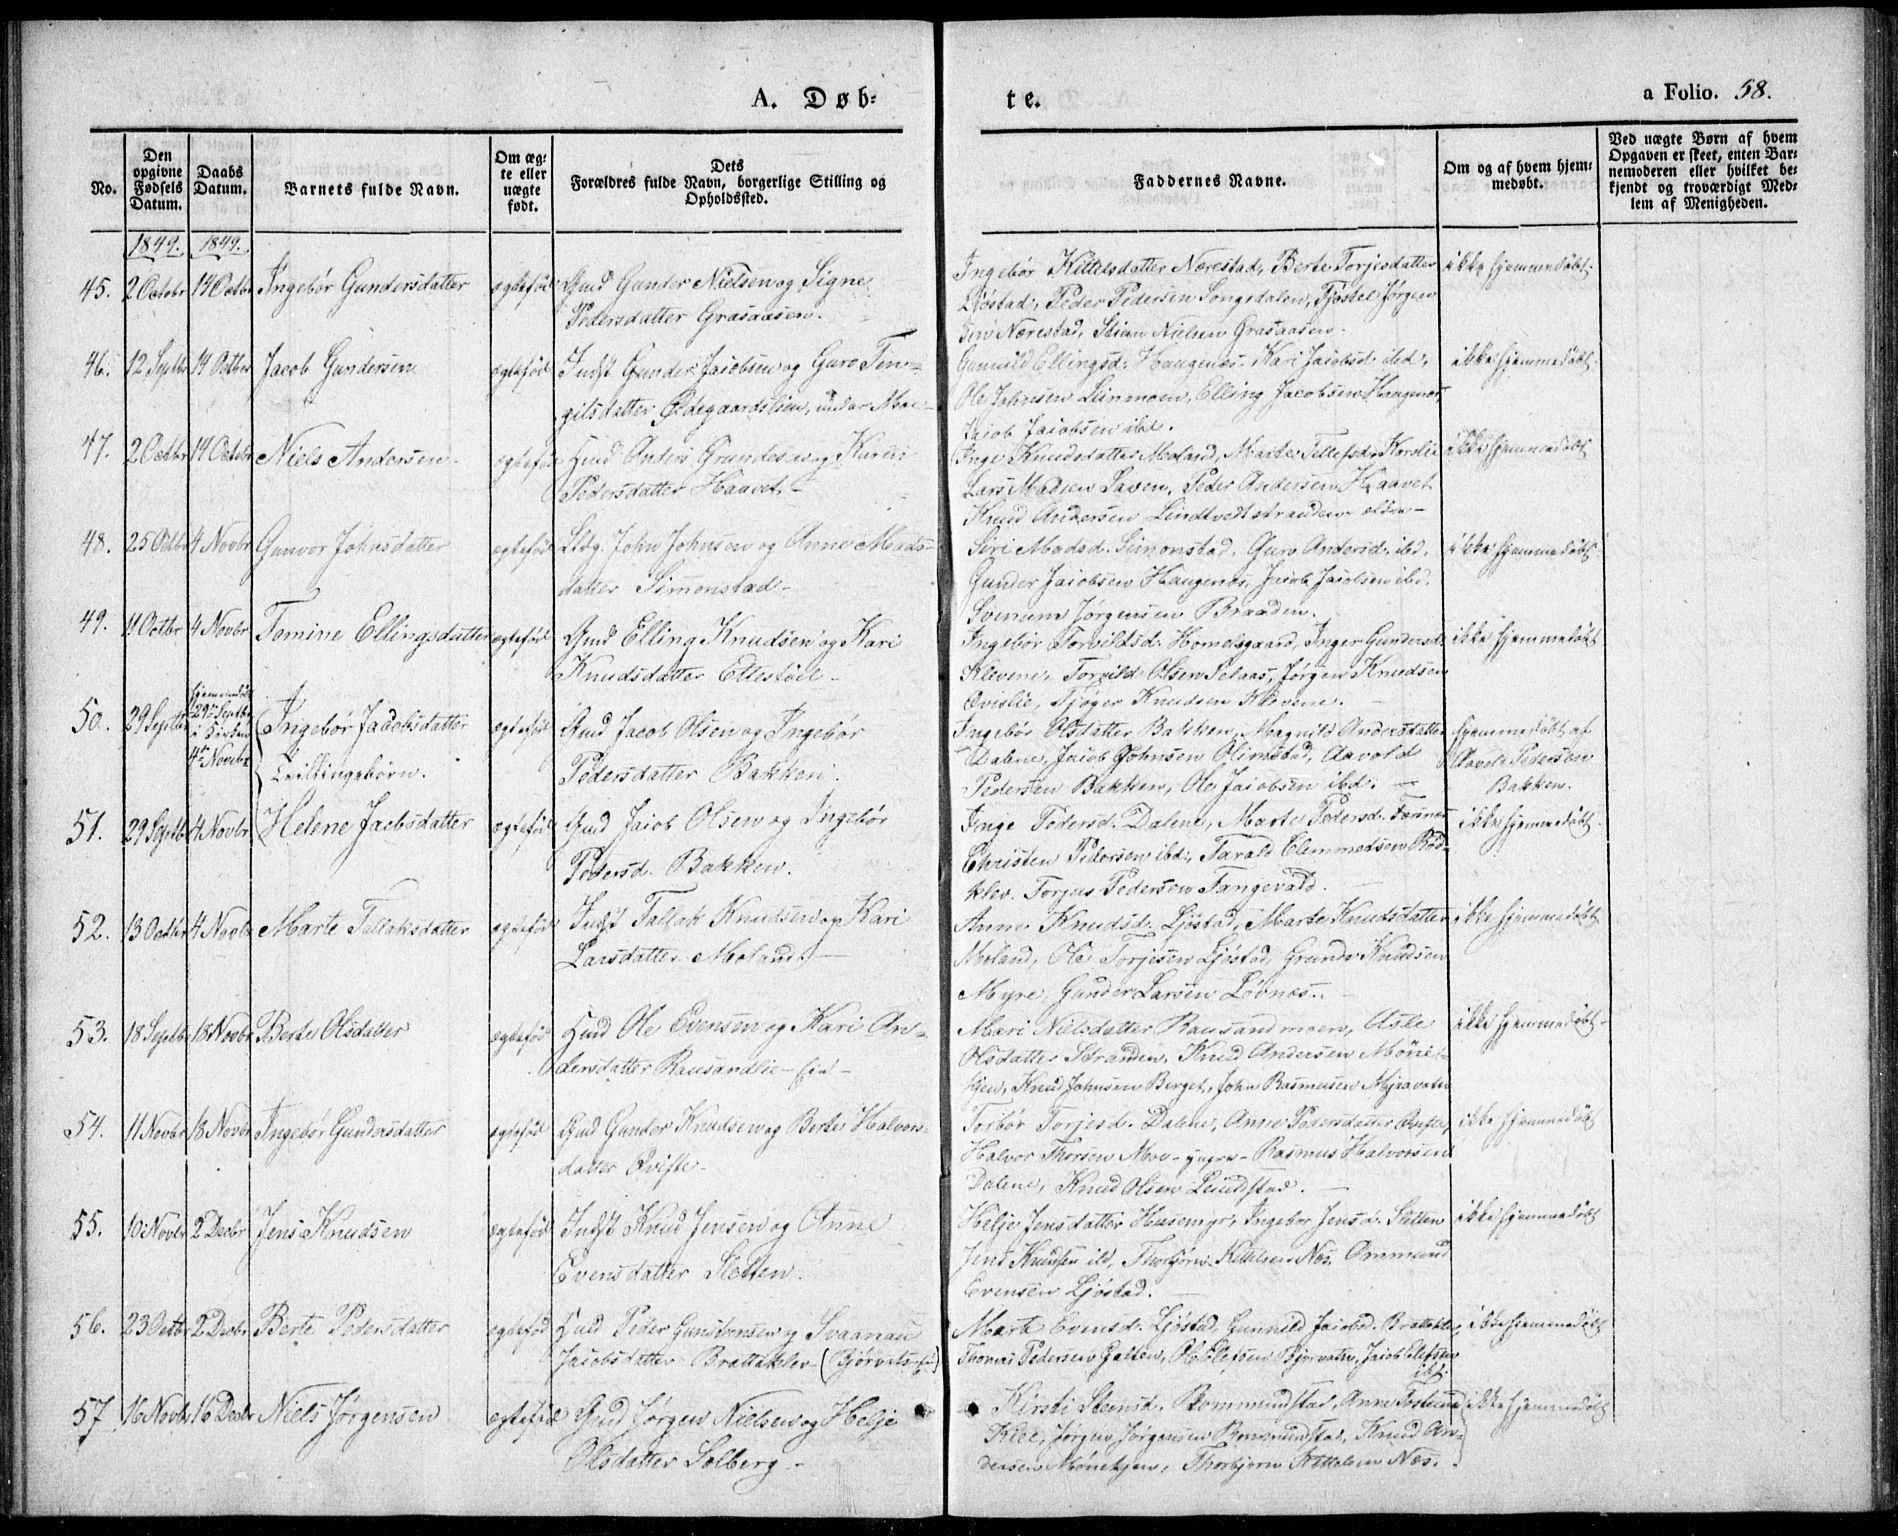 A. Døb-
te.
a Folio. 58.
No.
Den opgivne Fødsels Datum.
Daabs Datum.
Barnets fulde Navn.
Om ægte eller uægte født.
Dets Forældres fulde Navn, borgerlige Stilling og Opholdssted.
Faddernes Navne.
Om og af hvem hjemmedøbt.
Ved uægte Børn af hvem Opgaven er skeet, enten Barnemoderen eller hvilket bekjendt og troværdigt Medlem af Menigheden.
1849. 1849.
45. 2 Octobr 14 Octbr Ingebør Gundersdatter ægtefød Gmd Gunder Nielsen og Signe
Pedersdatter Grasaasen.
Ingebør Kittelsdatter Nærestad, Berte Torjesdatter
Ljøstad, Peder Pedersen Songedalen, Tjøstel Jørgen
sen Nærestad, Stian Nielsen Grasaasen.
ikke hjemmedøbt.
46. 12 Septbr 14 Octber Jacob Gundersen ægtefød Indst Gunder Jacobsen og Guro Ten-
gilsdatter Ødegaardslien, under
Gunnild Ellingsd. Haugenes, Kari Jacobsd. ibd.,
Ole Johnsen Leinmoen, Elling Jacobsen Haugenes,
Jacob Jacobsen ibd.
ikke hjemmedøbt.
47. 2 Octbr 14 Octobr Niels Andersen ægtefød Huud Anders Grundesen og Karen
Pedersdatter Haavet.
Inge Knudsdatter Moland, Marte Tellefsd.
Lars Madsen Saven, Peder Andersen Haavet
Knud Andersen Lindtvedtstranden ældre
ikke hjemmedøbt
48. 25 Octbr 4 Novbr Gunvor Johnsdatter ægtefød John Johnsen og Anne Mads-
datter Simonstad
Siri Madsd. Simonstad, Guro Andersd. ibd,
Gunder Jacobsen Haugenes, Jacob Jacobsen ibd.
Svenum Jørgensen Braaden.
ikke hjemmedøbt
49. 11 Octbr 4 Novbr Tomine Ellingsdatter ægtefød Gmd Elling Knudsen og Kari
Knudsdatter Ettestøl
Ingebør Torvildsd. Homelsgaard, Inger Gundersd.
Klevene, Torvild Olsen Selaas, Jørgen Knudsen
Øvislie, Tjøger Knudsen Klevene.
ikke hjemmedøbt
50. 29 Septbr hjemmedøbt
29de Septbr
i Kirken
4de Novbr
Ingebør Jacobsdatter
Tvillingebørn.
ægtefød Gmd Jacob Olsen og Ingebør
Pedersdatter Bakken.
Ingebør Olsdatter Bakken, Magnild Andersdatter
Dalene, Jacob Johnsen Olimstad, Aavold
Pedersen Bakken, Ole Jacobsen ibd.
hjemmedøbt af
Aavold Pedersen
Bakken.
51. 29 Septbr 4 Novbr Helene Jacbsdatter ægtefød Gmd Jacob Olsen og Ingebør
Pedersd. Bakken.
Inge Pedersd. Dalene, Marte Pedersd.
Christen Pedersen ibd., Tarald Clemmedsen
klev. Torjus Pedersen Tangevald.
ikke hjemmedøbt
52. 13 Octbr 4 Novbr Marte Tallaksdatter ægtefød Indst Tallak Knudsen og Kari
Larsdatter Moland
Anne Knudsd. Ljøstad, Marte Knutsdatter
Moland, Ole Torjesen Ljøstad, Grunde Knudsen
Myre, Gunder Larsen Løvnes.
ikke hjemmedøbt
53. 18 Septbr 18 Novbr Berte Olsdatter ægtefød Huud Ole Evensen og Kari An-
dersdatter Rausandlie
Mari Nielsdatter Rausandmoen, Asle
Olsdatter Stranden, Knud Andersen Møne-
tjen, Knud Johnsen Berget, John Rasmusen Mjaavatn
ikke hjemmedøbt
54. 11 Novbr 18 Novbr Ingebør Gundersdatter ægtefød Gmd Gunder Knudsen og Berte Halvors-
datter Øviste
Torbør Torjesd. Dalene, Anne Pedersdatter Øviste,
Halvor Thorsen Moe yngre Rasmus Halvorsen
Dalene, Knud Olsen
ikke hjemmedøbt
55. 10 Novbr 2 Decbr Jens Knudsen ægtefød Indst Knud Jensen og Anne
Evensdatter Sletten.
Helje Jensdatter Husemyr, Ingebor Jensd. Sletten
Jens Knudsen ibd, Thorbjørn Kittelsen Næs, Ommund
Evensen Ljøstad.
ikke hjemmedøbt
56. 23 Octbr 2 Decbr Berte Pedersdatter ægtefød Huud Peder Gunstensen og Svaanau
Jacobsdatter Brattaklev (Bjørvats
Marte Evensd. Ljøstad, Gunnild Jacobsd. Brattaklev
Thomas Pedersen Galten, Ole Olefsen Bjorvatn, Jacob Olefsen
ibd.
ikke hjemmedøbt
57 16 Novbr 16 Decbr Niels Jørgensen ægtefød Gmd Jørgen Nielsen og Helje
Olsdatter Solberg.
Kirsti Steensd. Rommundstad, Anne Tostensd
Klee, Jørgen Jørgensen Rommundstad, Knud An-
dersen Mønetjen, Thorbjørn Kittelsen Næs.
ikke hjemmedøbt